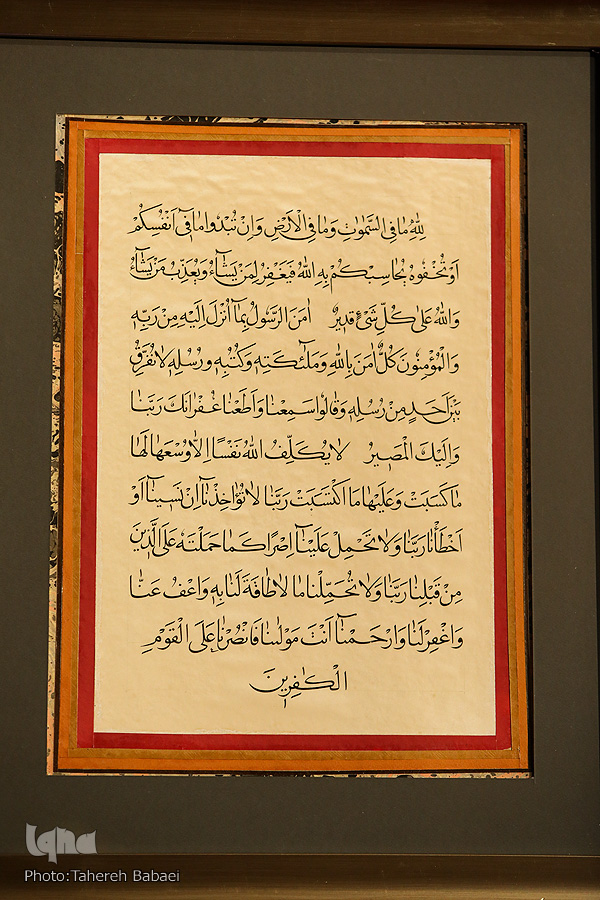 لِلّٰهِ مَا فِى السَّمٰوٰتِ وَمَا فِى الْاَرْضِ وَاِنْ تُبْدُوا مَا فٓى اَنْفُسِكُمْ
اَوْ تُخْفُوهُ يُحَاسِبْكُمْ بِهِ اللّٰهُ فَيَغْفِرُ لِمَنْ يَشَٓاءُ وَيُعَذِّبُ مَنْ يَشَٓاءُ
وَاللّٰهُ عَلٰى كُلِّ شَىْءٍ قَدِيرٌ اٰمَنَ الرَّسُولُ بِمَٓا اُنْزِلَ اِلَيْهِ مِنْ رَبِّهِ
وَالْمُؤْمِنُونَ كُلٌّ اٰمَنَ بِاللّٰهِ وَمَلٰٓئِكَتِهِ وَكُتُبِهِ وَرُسُلِهِ لَا نُفَرِّقُ
بَيْنَ اَحَدٍ مِنْ رُسُلِهِ وَقَالُوا سَمِعْنَا وَاَطَعْنَا غُفْرَانَكَ رَبَّنَا
وَاِلَيْكَ الْمَصِيرُ لَا يُكَلِّفُ اللّٰهُ نَفْسًا اِلَّا وُسْعَهَا لَهَا
مَا كَسَبَتْ وَعَلَيْهَا مَا اكْتَسَبَتْ رَبَّنَا لَا تُؤَاخِذْنَٓا اِنْ نَسِينَٓا اَوْ
اَخْطَأْنَا رَبَّنَا وَلَا تَحْمِلْ عَلَيْنَٓا اِصْرًا كَمَا حَمَلْتَهُ عَلَى الَّذِينَ
مِنْ قَبْلِنَا رَبَّنَا وَلَا تُحَمِّلْنَا مَا لَا طَاقَةَ لَنَا بِهِ وَاعْفُ عَنَّا
وَاغْفِرْ لَنَا وَارْحَمْنَٓا اَنْتَ مَوْلٰىنَا فَانْصُرْنَا عَلَى الْقَوْمِ
الْكٰفِرِينَ
iqna
Photo:Tahereh Babaei